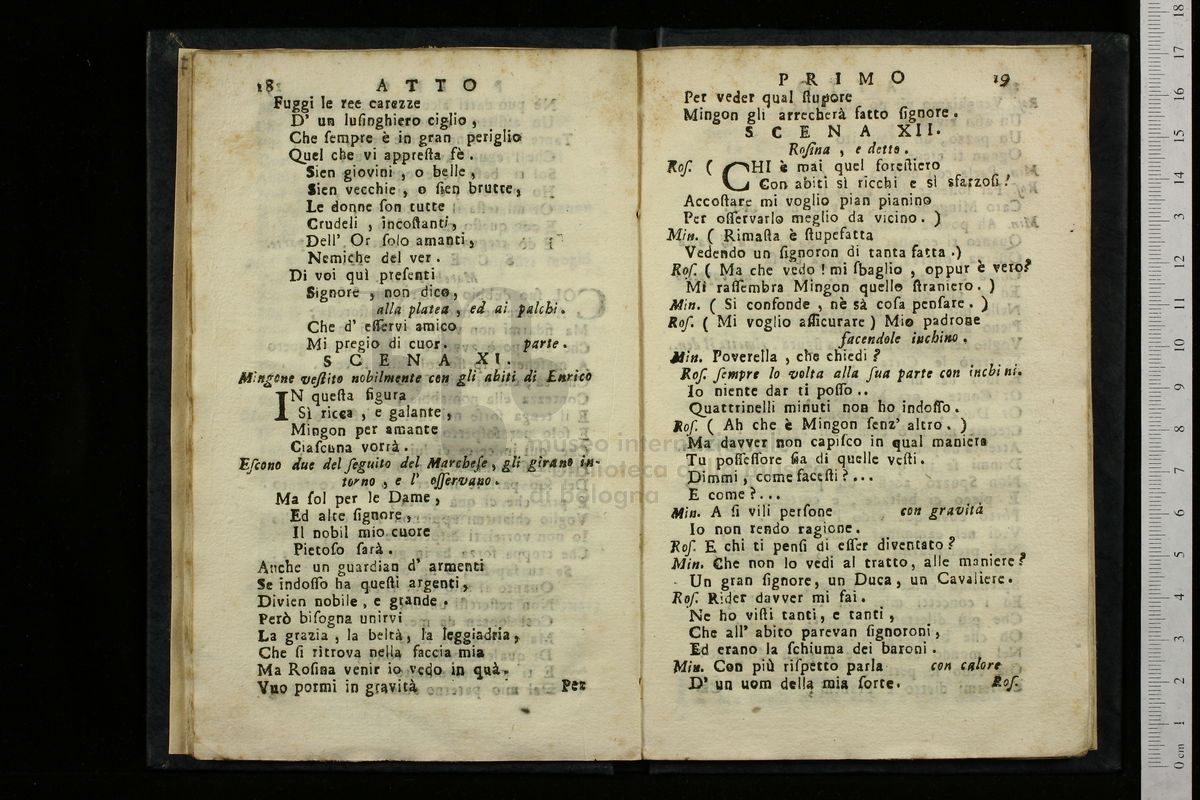 18 ATTO
Fuggi le ree carezze
D' un luſinghiero ciglio,
Che ſempre è in gran periglio
Quel che vi appreſta fè.
Sien giovini, o belle,
Sien vecchie, o ſien brutte,
Le donne ſon tutte
Crudeli, incoſtanti,
Dell' Or ſolo amanti,
Nemiche del ver.
Di voi quì preſenti
Signore, non dico,
alla platea, ed ai palchi.
Che d' eſſervi amico
Mi pregio di cuor. parte.
SCENA XI.
Mingone veſtito nobilmente con gli abiti di Enrico
IN queſta figura
Sì ricca, e galante,
Mingon per amante
Ciaſcuna vorrà.
Eſcono due del ſeguito del Marcheſe, gli girano in-
torno, e l' oſſervano.
Ma ſol per le Dame,
Ed alte ſignore,
Il nobil mio cuore
Pietoſo ſarà.
Anche un guardian d' armenti
Se indoſſo ha queſti argenti,
Divien nobile, e grande.
Però biſogna unirvi
La grazia, la beltà, la leggiadria,
Che ſi ritrova nella faccia mia
Ma Roſina venir io vedo in quà.
Vuo pormi in gravità Per
PRIMO 19
Per veder qual ſtupore
Mingon gli arrecherà fatto ſignore.
SCENA XII.
Roſina, e detto.
Roſ. ( CHI è mai quel foreſtiero
Con abiti sì ricchi e sì sfarzoſi!
Accoſtare mi voglio pian pianino
Per oſſervarlo meglio da vicino. )
Min. ( Rimaſta è ſtupefatta
Vedendo un ſignoron di tanta fatta.)
Roſ. ( Ma che vedo! mi ſbaglio, oppur è vero?
Mi raſſembra Mingon quello ſtraniero. )
Min. ( Si confonde, nè sà coſa penſare. )
Roſ. ( Mi voglio aſſicurare ) Mio padrone
facendole inchino.
Min. Poverella, che chiedi?
Roſ. ſempre lo volta alla ſua parte con inchini.
Io niente dar ti poſſo..
Quattrinelli minuti non ho indoſſo.
Roſ. ( Ah che è Mingon ſenz' altro. )
Ma davver non capiſco in qual maniera
Tu poſſeſſore ſia di quelle veſti.
Dimmi, come faceſti?...
E come?...
Min. A ſi vili perſone con gravità
Io non rendo ragione.
Roſ. E chi ti penſi di eſſer diventato?
Min. Che non lo vedi al tratto, alle maniere?
Un gran ſignore, un Duca, un Cavaliere.
Roſ. Rider davver mi fai.
Ne ho viſti tanti, e tanti,
Che all' abito parevan ſignoroni,
Ed erano la ſchiuma dei baroni.
Min. Con più riſpetto parla con calore
D' un uom della mia ſorte. Roſ.